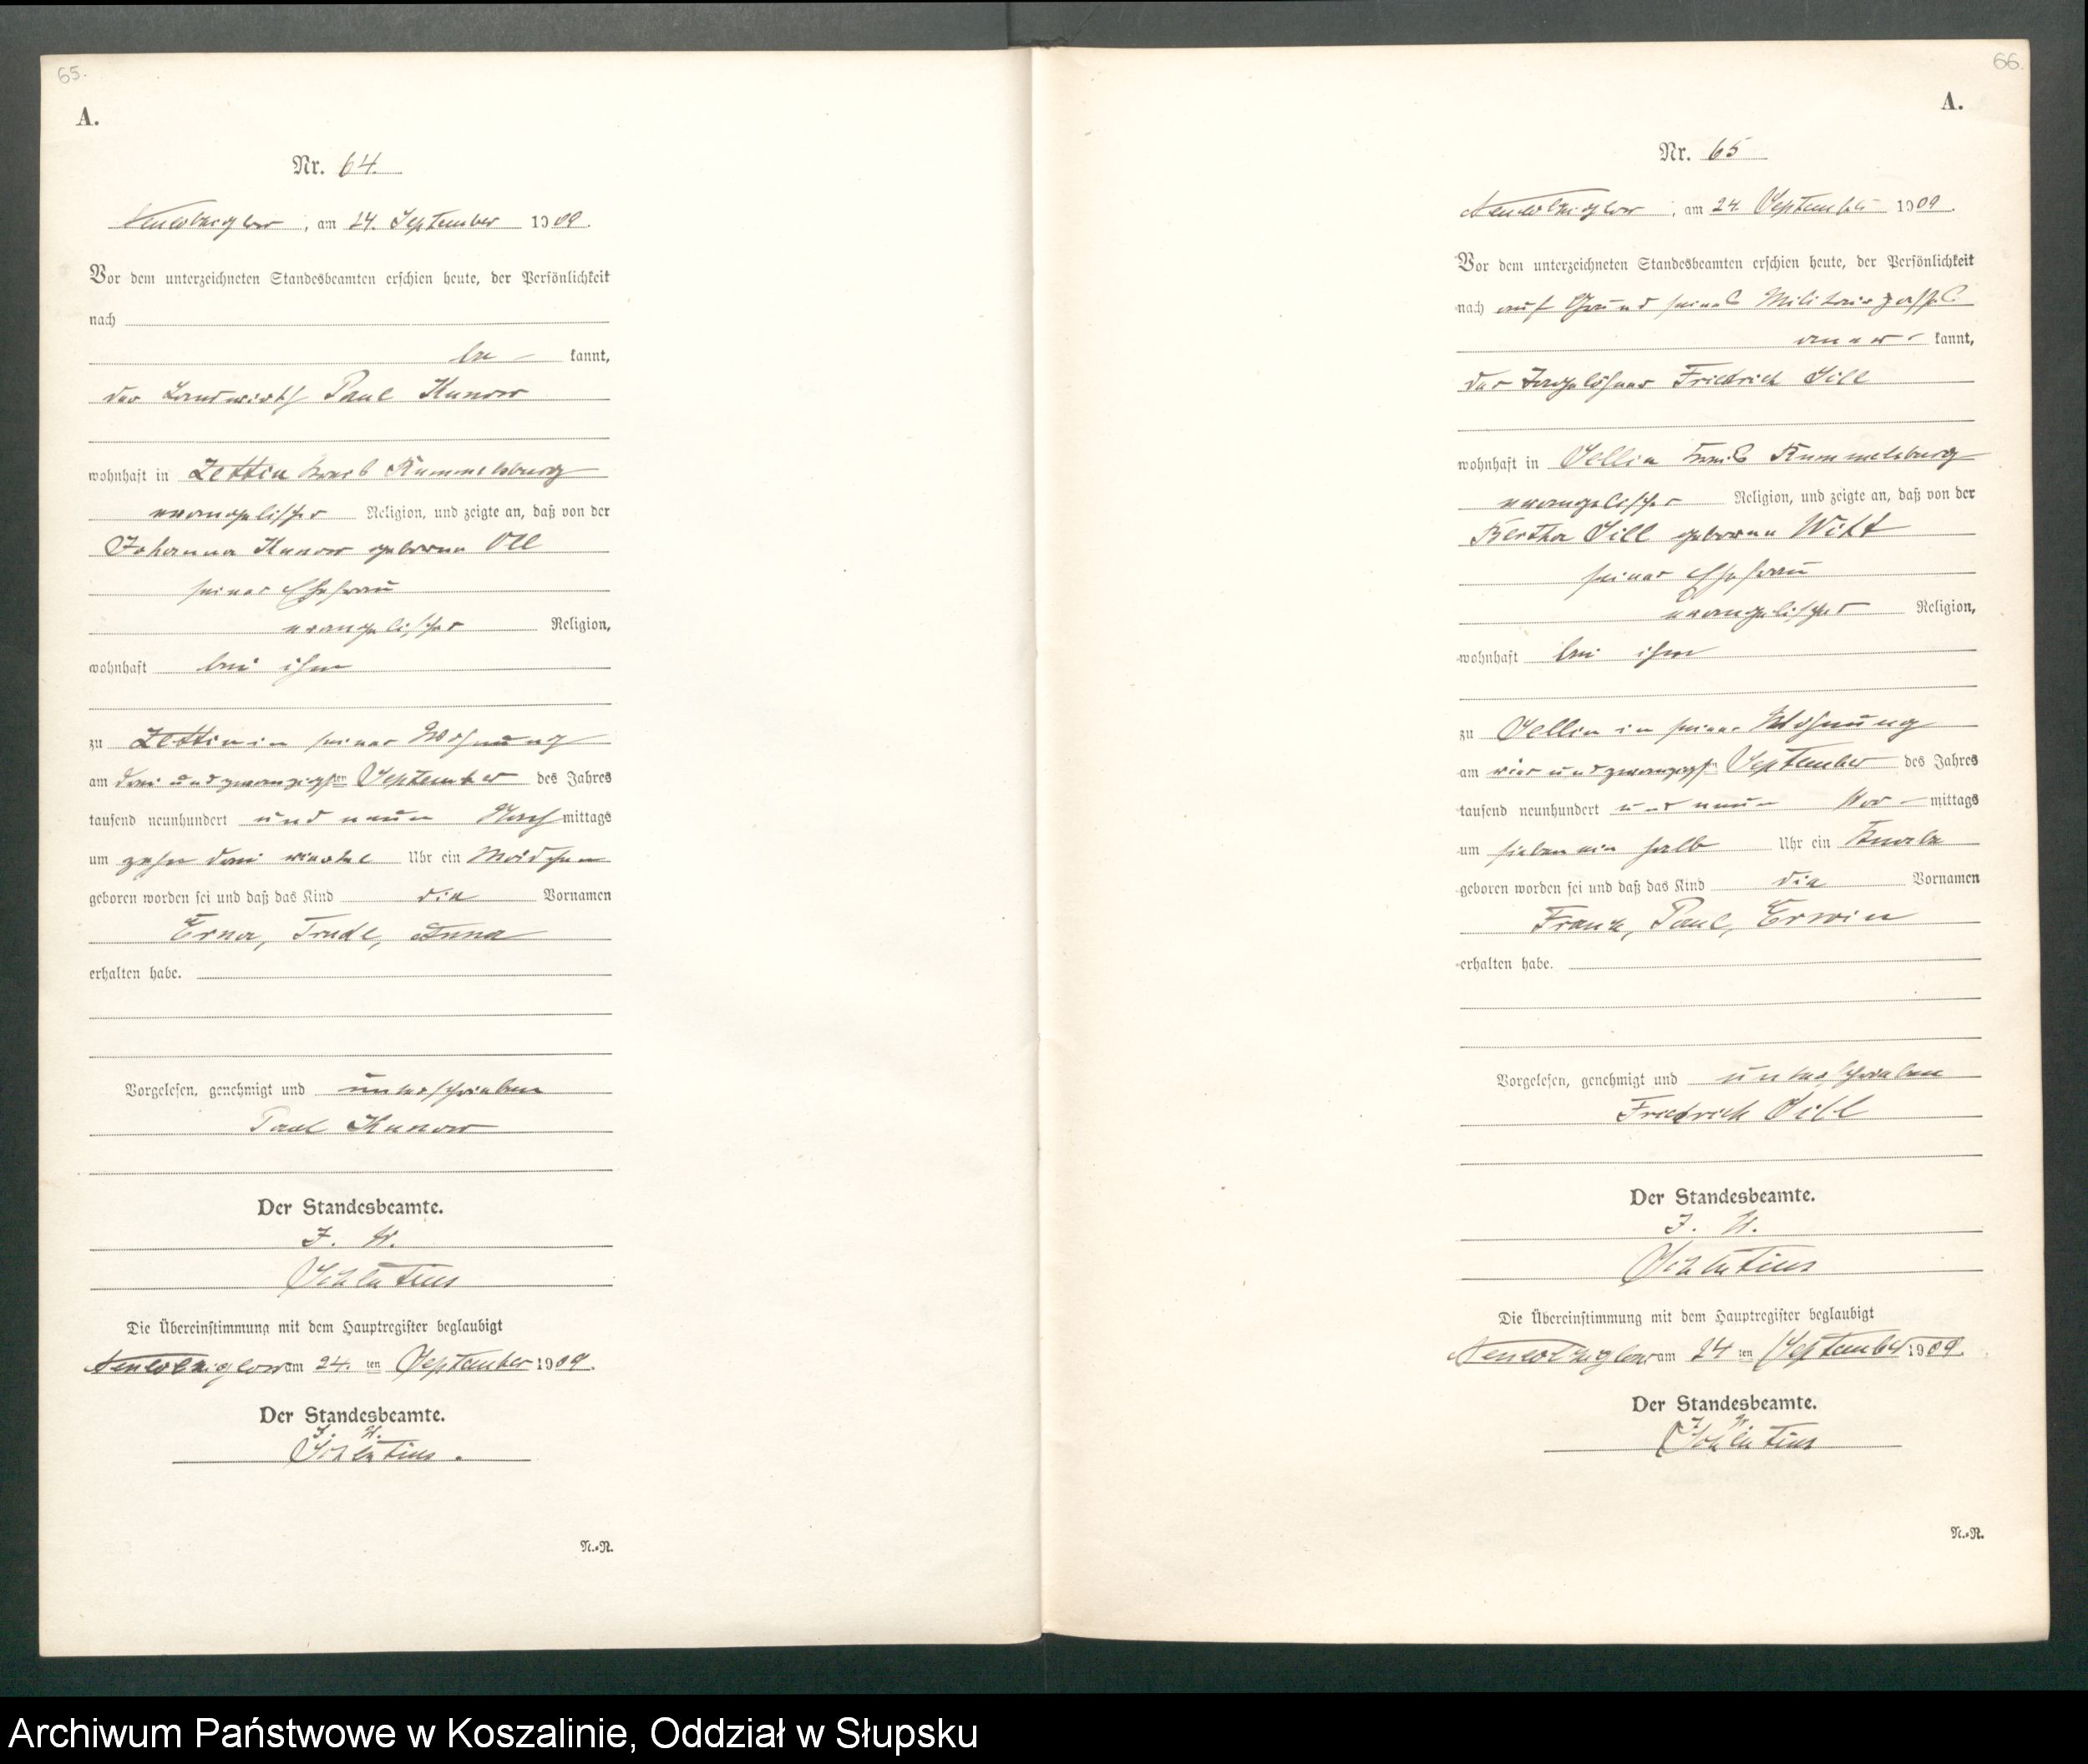 65.
A.
Nr. 64.
Neukolziglow, am 24. September 1909.
Vor dem unterzeichneten Standesbeamten erschien heute, der Persönlichkeit
nach
be- kannt,
der Landwirth Paul Kunow
wohnhaft in Zettin Kreis Rummelsburg
evangelischer Religion, und zeigte an, daß von der
Johanna Kunow geborene Oll
seiner Ehefrau
evangelischer Religion,
wohnhaft bei ihm
zu Zettin in seiner Wohnung
am drei und zwanzigsten September des Jahres
tausend neunhundert und neun Nachmittags
um zehn drei viertel Uhr ein Mädchen
geboren worden sei und daß das Kind die Vornamen
Erna, Trude, Anna
erhalten habe.
Vorgelesen, genehmigt und unterschrieben
Paul Kunow
Der Standesbeamte.
J. V.
Die Übereinstimmung mit dem Hauptregister beglaubigt
Neukolziglow am 24. ten September 1909.
Der Standesbeamte.
J. V.
N.-R.
66.
A.
Nr. 65
Neukolziglow, am 24. September 1909.
Vor dem unterzeichneten Standesbeamten erschien heute, der Persönlichkeit
nach auf Grund seines Militairpasses
aner- kannt,
der Tagelöhner Friedrich Sill
wohnhaft in Sellin Kreis Rummelsburg
evangelischer Religion, und zeigte an, daß von der
Bertha Sill geborene Witt
seiner Ehefrau
evangelischer Religion,
wohnhaft bei ihm
zu Sellin in seiner Wohnung
am vier und zwanzigsten September des Jahres
tausend neunhundert und neun Vor-mittags
um sieben ein halb Uhr ein Knabe
geboren worden sei und daß das Kind die Vornamen
Franz, Paul, Erwin
erhalten habe.
Vorgelesen, genehmigt und unterschrieben
Friedrich Sill
Der Standesbeamte.
J. V.
Die Übereinstimmung mit dem Hauptregister beglaubigt
Neukolziglow am 24 ten September 1909.
Der Standesbeamte.
J. V.
N.-R.
Archiwum Państwowe w Koszalinie, Oddział w Słupsku